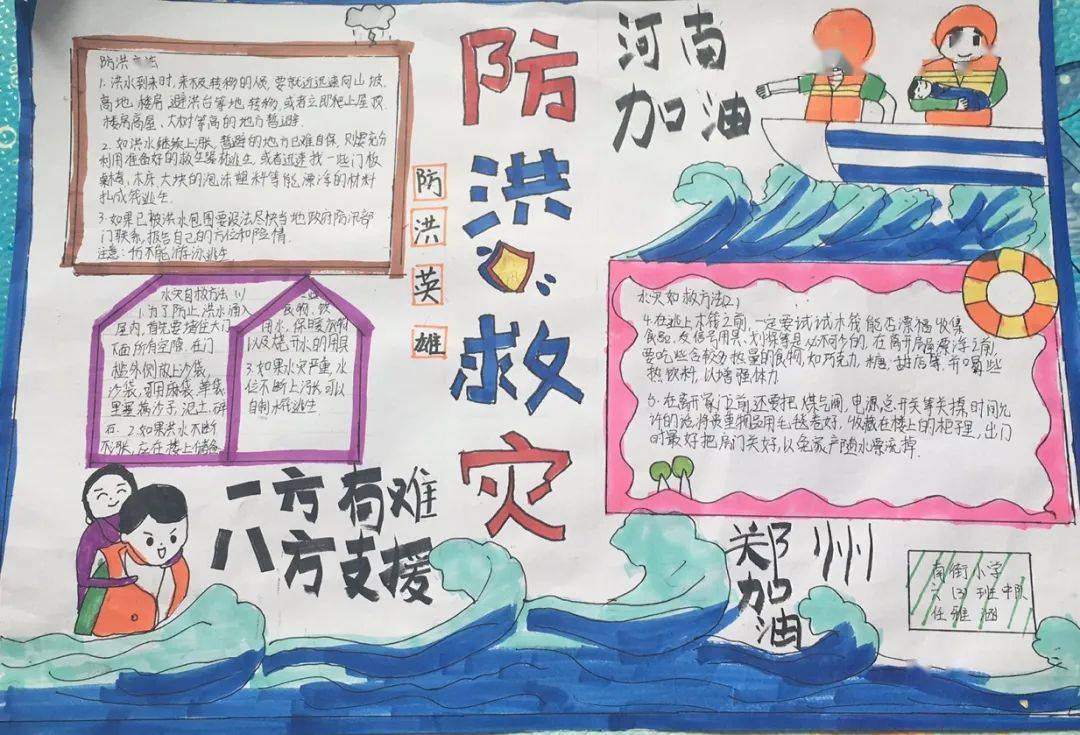 防洪方法
1.洪水到来时,来不及转移的人,要就近迅速向山坡、
高地、楼房、避洪台等地转移,或者立即爬上屋顶、
楼房高屋、大树等高的地方暂避。
2.如洪水继续上涨,暂避的地方已难自保,则要充分
利用准备好的救生器材逃生,或者迅速找一些门板、
桌椅、木床、大块的泡沫塑料等能漂浮的材料
扎成筏逃生。
3.如果已被洪水包围要设法尽快当地政府防汛部
门联系,报告自己的方位和险情。
注意:仍不能游泳逃生
防洪英雄
防洪救灾
河南
加油
水灾自救方法(1)
1.为了防止洪水涌入
屋内,首先要堵住大门
下面所有空隙,在门
槛外侧放上沙袋,
沙袋,可用麻袋、草袋
里塞满沙子、泥土、碎
石。2.如果洪水不断
不涨,应在楼上储备
一些
食物、饮
用水、保暖衣物
以及烧开水的用具
3.如果水灾严重,水
位不断上涨,可以
自制木筏逃生
水灾如救方法(2)
4.在逃上木筏之前,一定要试试木筏能否漂福收集
食品、发信号用具、划桨等是必不可少的。在离开房屋漂浮之前,
要吃些含较多热量的食物,如巧克力、糖、甜店等,并喝些
热饮料,以增强体力
5.在离开家门之前,还要把煤气阀、电源总开关等关掉,时间允
许的话,将贵重物品用毛毯卷好,收藏在楼上的柜子里,出门
时最好把房门关好,以免家产随水漂流掉。
一方有难
八方支援
郑州
加油
南街小学
六(3)班中队
任雅涵